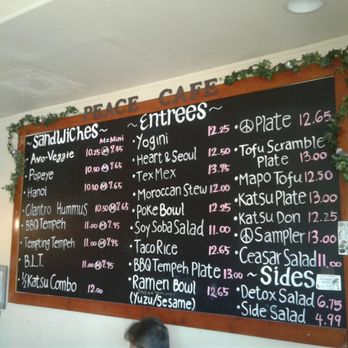 PEACE CAFE
~Sandwiches~
M=Mini
• Avo-Veggie 10.25 M 8.95
• Popeye 10.50 M 8.95
• Hanoi 10.50 M 8.95
• Cilantro Hummus 10.50 M 8.95
• BBQ Tempeh 11.00 M 9.95
• Tempting Tempeh 11.00 M 9.95
• B.L.T. 11.00 M 9.95
• ½ Katsu Combo 12.00
~Entrees~
• Yogini 12.25
• Heart & Seoul 12.50
• Tex Mex 13.95
• Moroccan Stew 12.00
• Poke Bowl 12.25
• Soy Soba Salad 11.00
• Taco Rice 12.65
• BBQ Tempeh Plate 13.00
• Ramen Bowl 12.65
(Yuzu/Sesame)
• ☮ Plate 12.65
• Tofu Scramble
Plate 13.00
• Mapo Tofu 12.50
• Katsu Plate 13.00
• Katsu Don 12.25
• ☮ Sampler 13.00
• Ceasar Salad 11.00
~Sides~
Detox Salad 6.75
• Side Salad 4.99